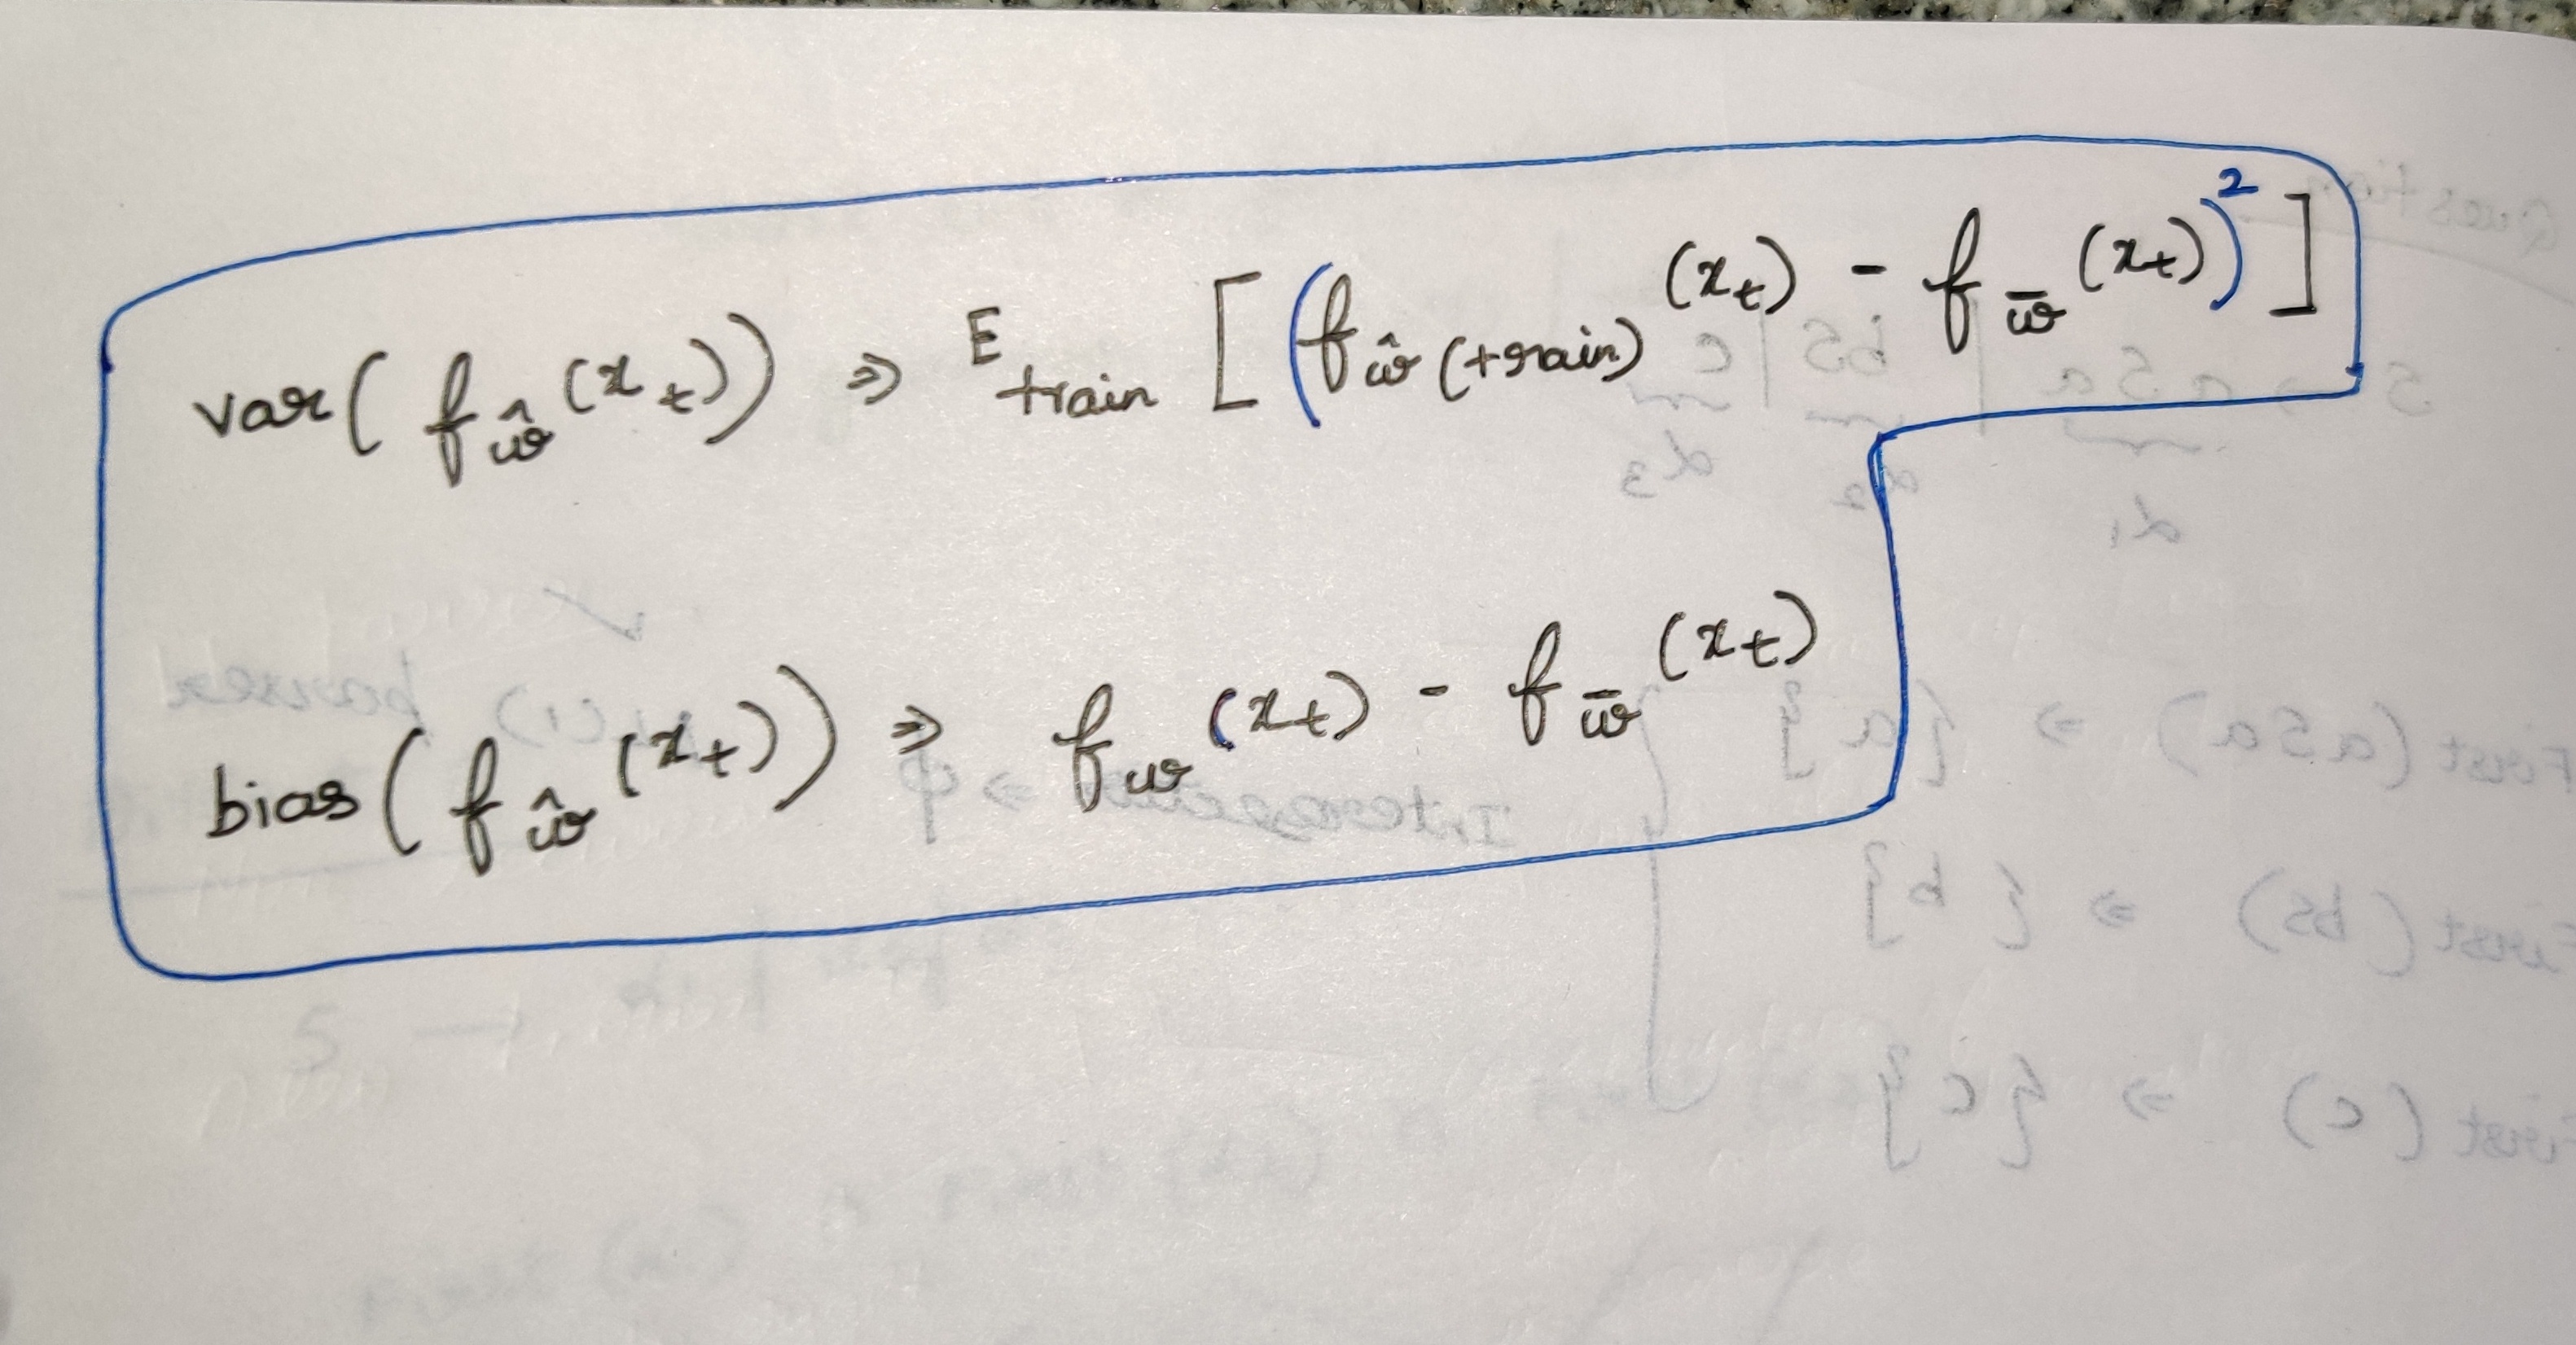 var(f_ŵ(x_t)) ⇒ E_train [(f_ŵ(train)(x_t) - f_w̄(x_t))²]
bias(f_ŵ(x_t)) ⇒ f_w(x_t) - f_w̄(x_t)